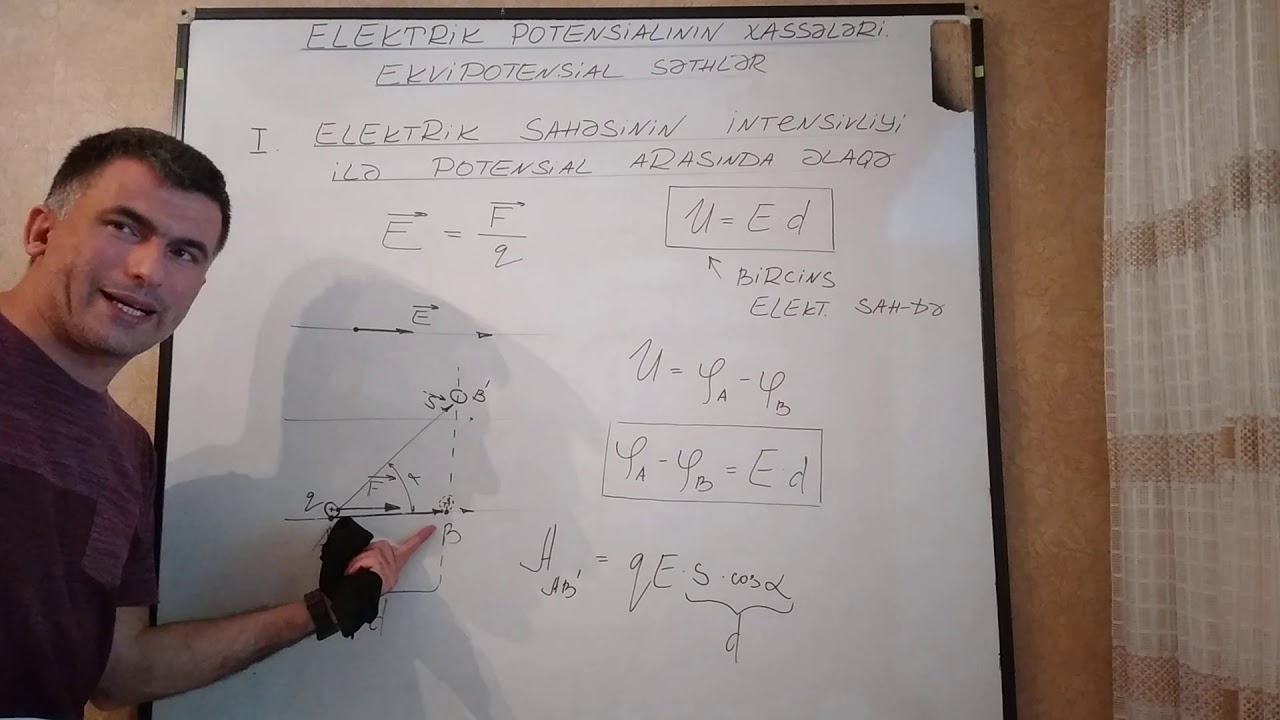 ELEKTRİK POTENSİALININ XASSƏLƏRİ.
EKVİPOTENSİAL SƏTHLƏR
I. ELEKTRİK SAHƏSİNİN İNTENSİVLİYİ
İLƏ POTENSİAL ARASINDA ƏLAQƏ
E = F/q
U = E d
BİRCİNS
ELEKT. SAH-DƏ
E
U = φA - φB
S B'
φA - φB = E d
q F α
B
A AB' = qE·S·cosα
d